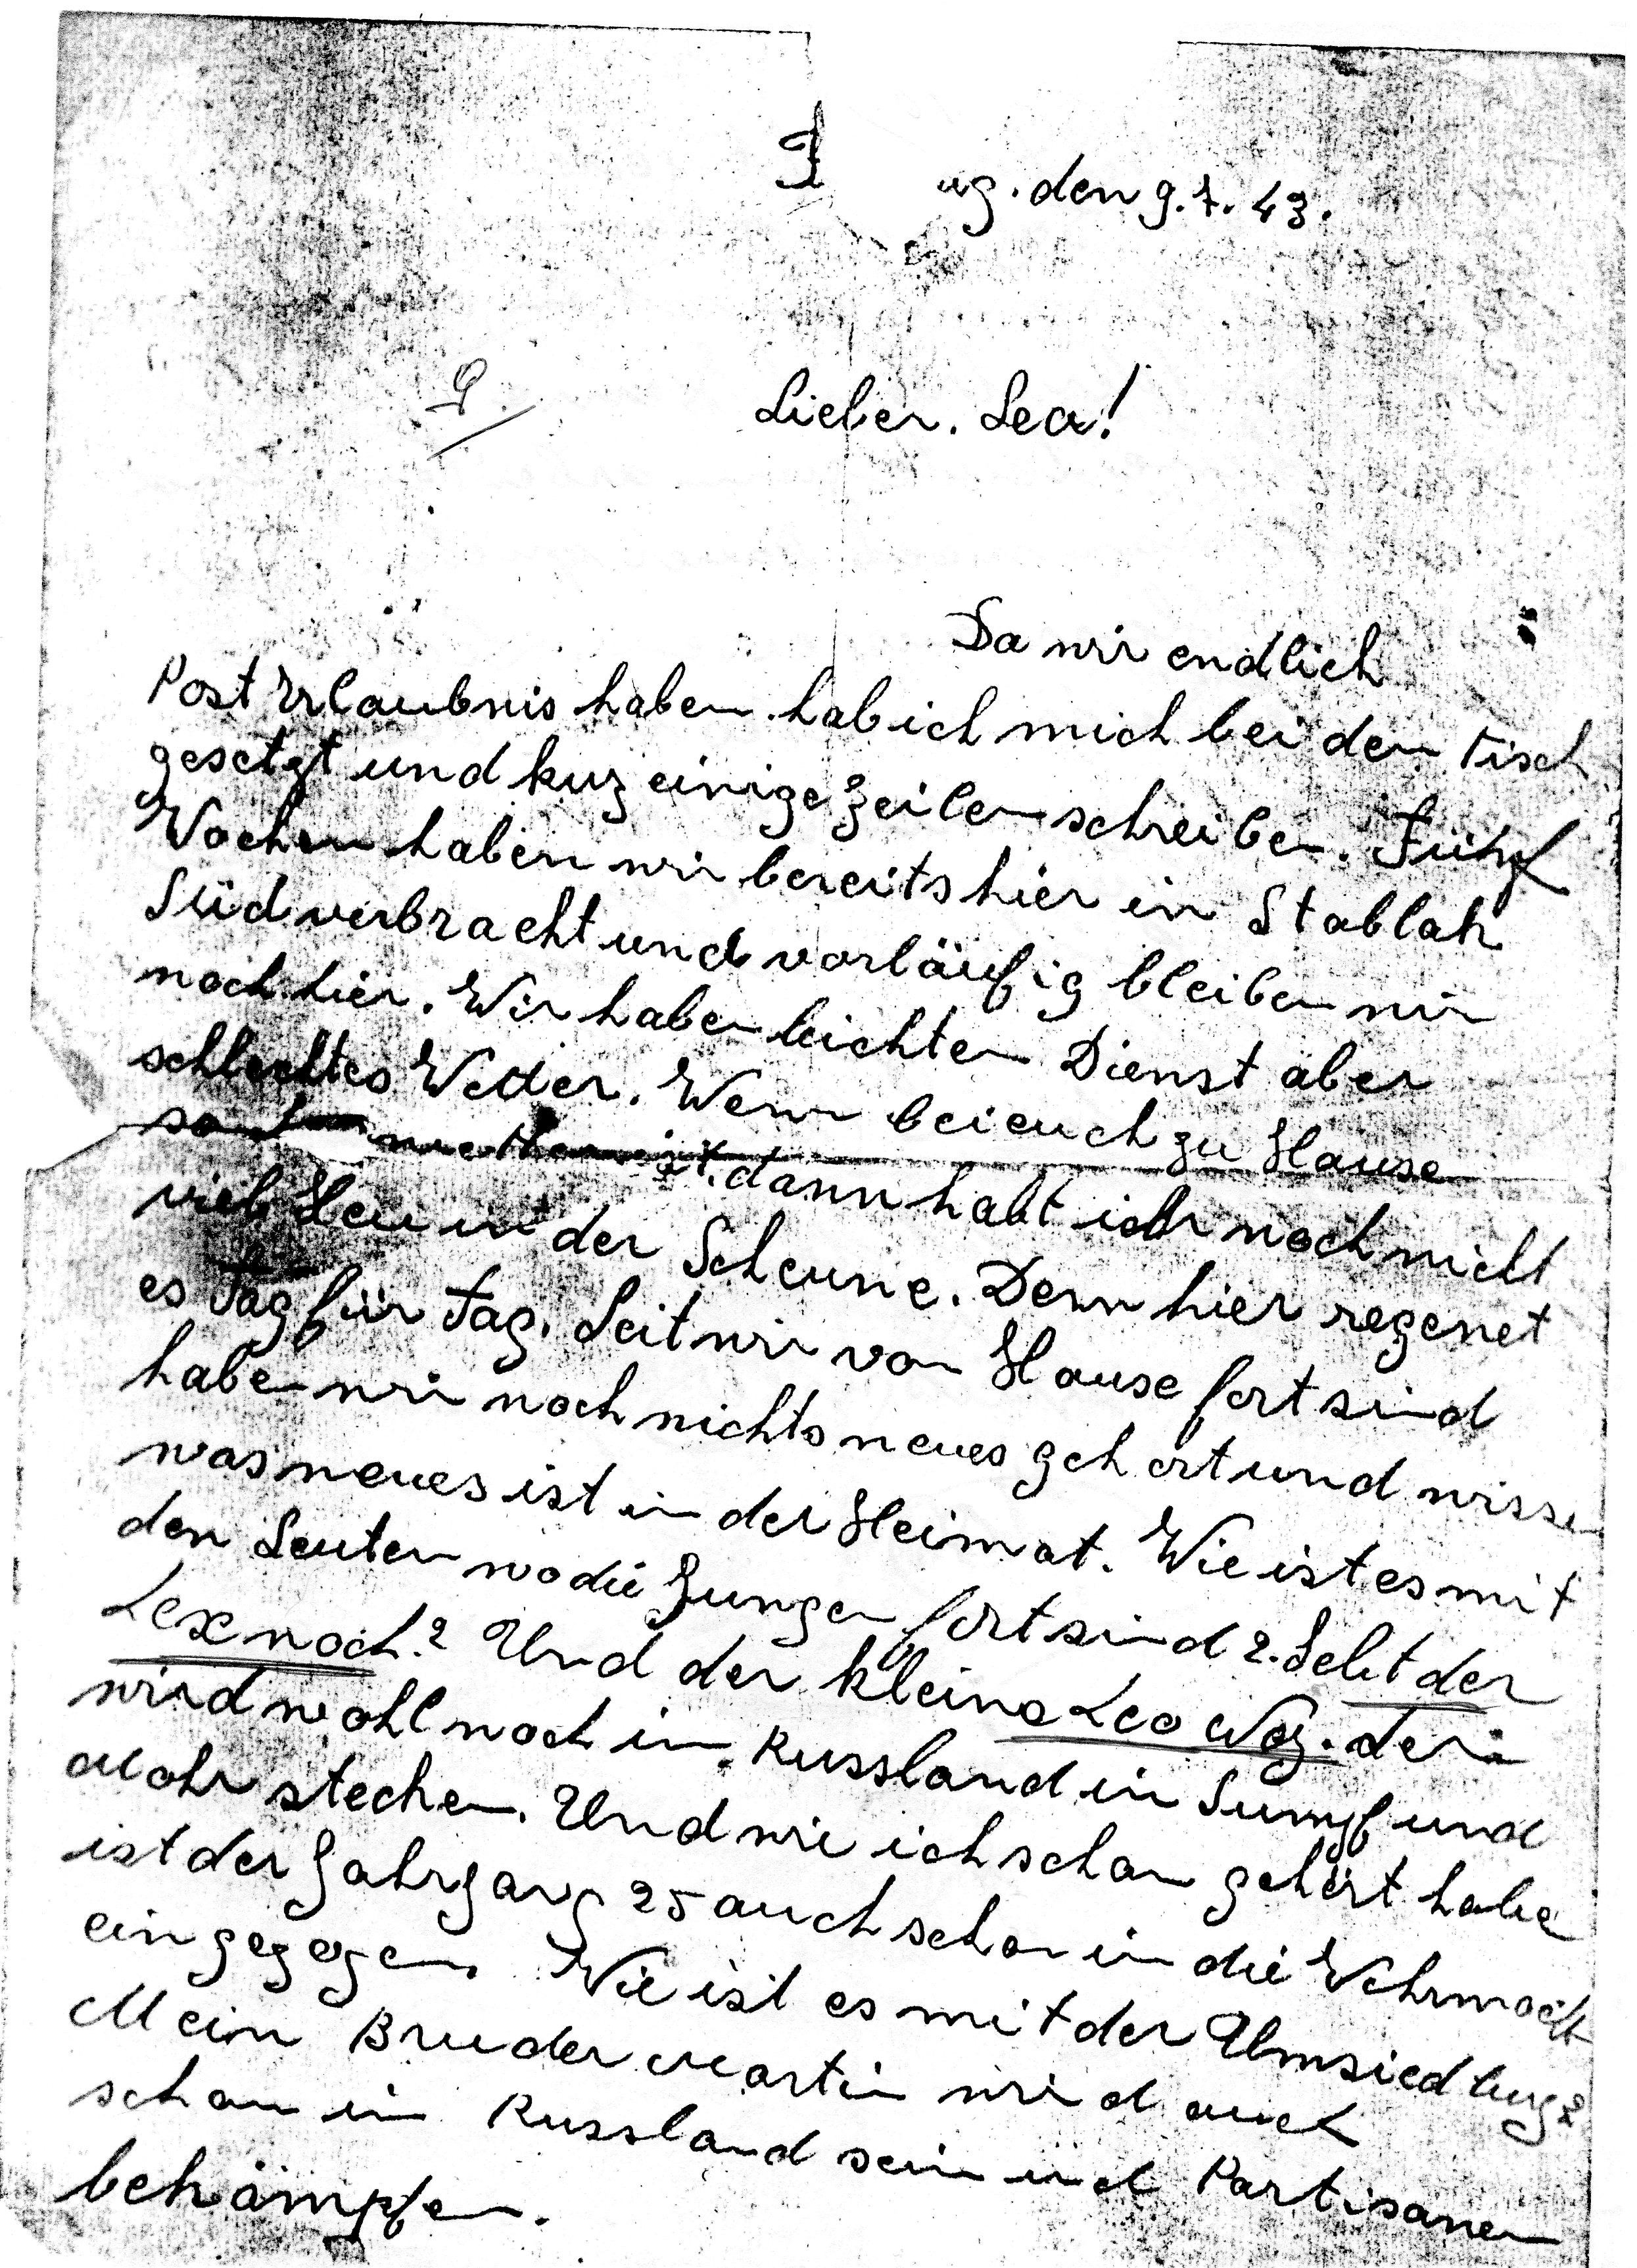 ug. den 9.7.43.
Lieber. Leo!
Da wir endlich
Post Erlaubnis haben. hab ich mich bei den Tisch
gesetzt und kuz einige Zeilen schreiben. Fühnf
Wochen haben wir bereits hier in Stablak
Süd verbracht und vorläufig bleiben wir
noch hier. Wir haben leichten Dienst aber
schlechtes Wetter. Wenn bei euch zu Hause
dann habt ihr noch nicht
viel Heu in der Scheune. Denn hier regenet
es Tag für Tag. Seit wir von Hause fort sind
haben wir noch nichts neues gehört und wissen
was neues ist in der Heimat. Wie ist es mit
den Leuten wo die Jungen fort sind? Lebt der
Lex noch? Und der kleine Leo Woz. der
wird wohl noch in Russland in Sumpf und
Mohr stechen. Und wie ich schon gehört habe
ist der Jahrgang 25 auch schon in die Wehrmacht
eingezogen. Wie ist es mit der Umsiedlung?
Mein Bruder Martin wird auch
schon in Russland sein und Partisanen
bekämpfen.